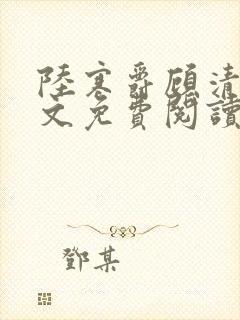 陸寒爵顧清
文免費閱讀
鄧某